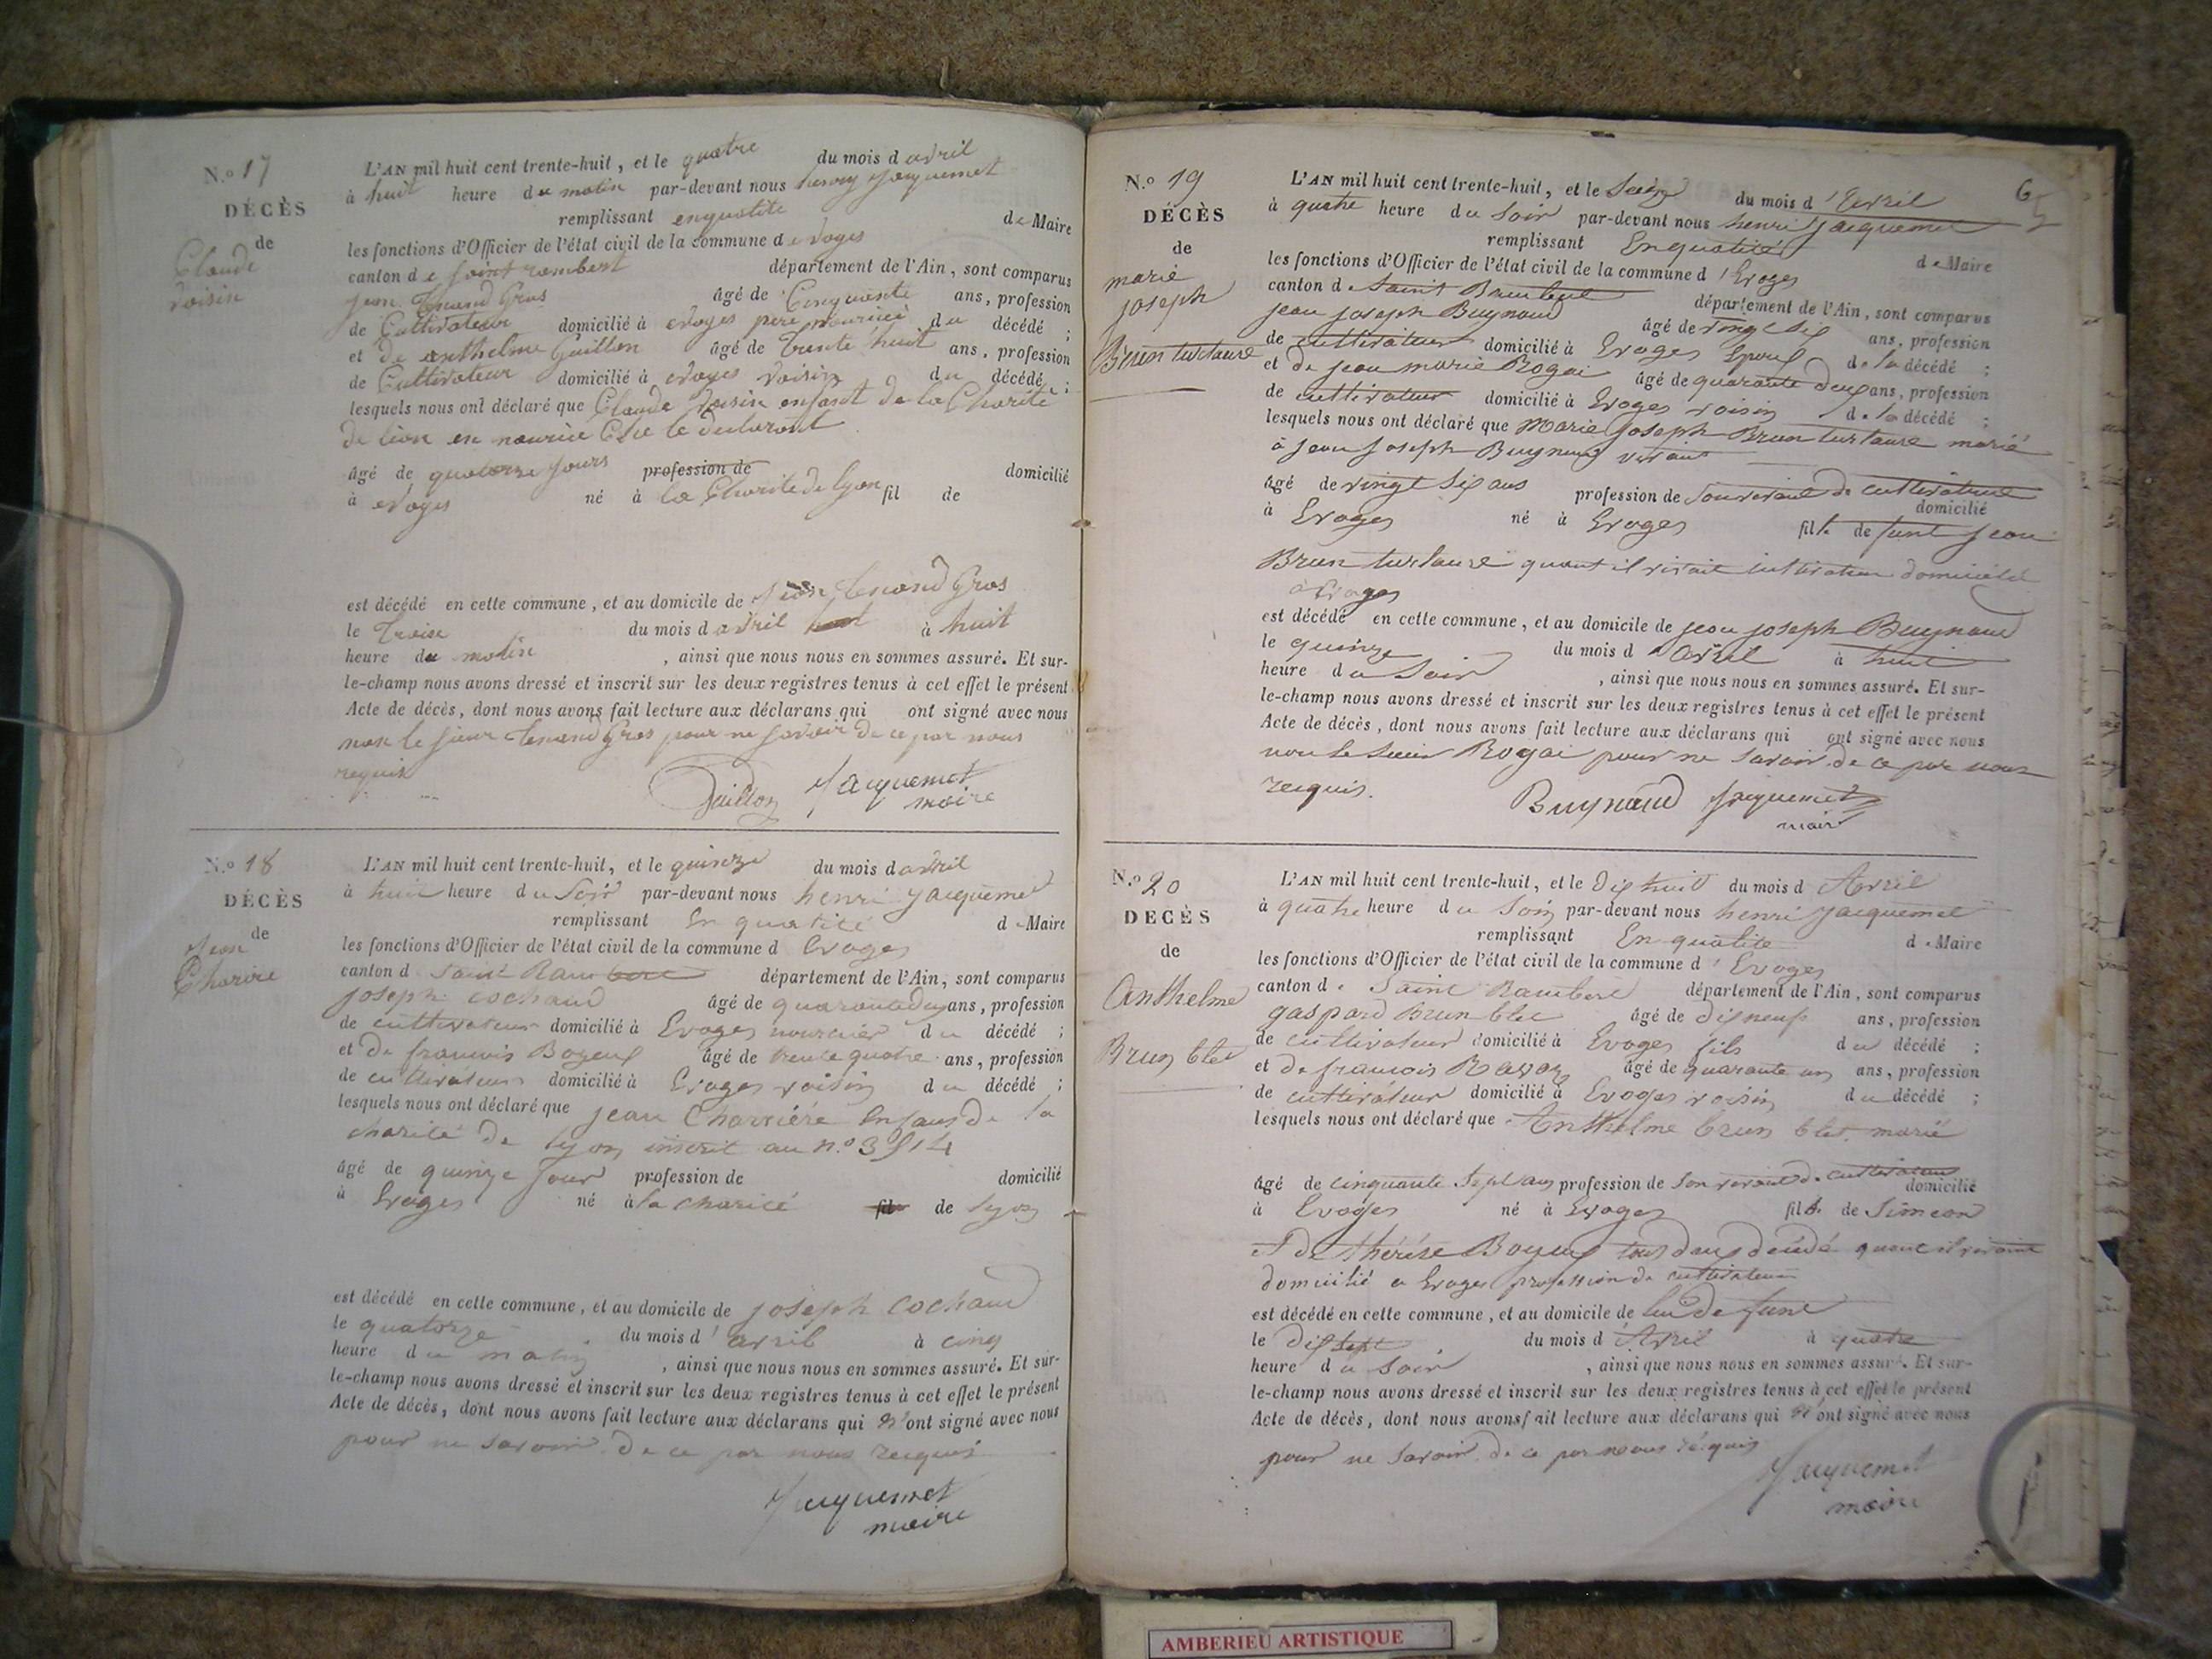 N.° 17
DÉCÈS
de
Claude
voisin
L'AN mil huit cent trente-huit, et le quatre du mois d avril
à huit heure du matin par-devant nous henry jacquemet
remplissant enqualité de Maire
les fonctions d'Officier de l'état civil de la commune d evoges
canton de saint rambert département de l'Ain, sont comparus
jean tenand Gros âgé de Cinquente ans, profession
de Cultivateur domicilié à evoges pere nouricié du décédé ;
et de anthelme Guillon âgé de trente huit ans, profession
de Cultivateur domicilié à evoges voisin du décédé ;
lesquels nous ont déclaré que Claude voisin enfant de la Charite
de lion en nourice
âgé de quatorze jours profession de domicilié
à evoges né à la Charite de lyon fil de
est décédé en cette commune, et au domicile de jean tenand Gros
le troise du mois d avril à huit
heure du matin , ainsi que nous nous en sommes assuré. Et sur-
le-champ nous avons dressé et inscrit sur les deux registres tenus à cet effet le présent
Acte de décès, dont nous avons fait lecture aux déclarans qui ont signé avec nous
non le sieur tenand Gros pour ne savoir de ce par nous
requis
Guillon Jacquemet
maire
N.° 18
DÉCÈS
de
Jean
Charire
L'AN mil huit cent trente-huit, et le quinze du mois d avril
à huit heure du Soir par-devant nous henri jacquemet
remplissant En qualité de Maire
les fonctions d'Officier de l'état civil de la commune d Evoges
canton d Saint Rambert département de l'Ain, sont comparus
joseph cochaud âgé de quarante deux ans, profession
de cultivateur domicilié à Evoges nourcier du décédé ;
et De francois Bozeuf âgé de trente quatre ans, profession
de cultivateur domicilié à Evoges voisin du décédé ;
lesquels nous ont déclaré que jean Charriére Enfant de la
charité de lyon inscrit au n.°
âgé de quinze jour profession de domicilié
à Evoges né à la charité fil de lyon
est décédé en cette commune, et au domicile de joseph cochaud
le quatorze du mois d' avril à cinq
heure du matin , ainsi que nous nous en sommes assuré. Et sur-
le-champ nous avons dressé et inscrit sur les deux registres tenus à cet effet le présent
Acte de décès, dont nous avons fait lecture aux déclarans qui n'ont signé avec nous
pour ne savoir de ce par nous requis
Jacquemet
maire
65
N.° 19
DÉCÈS
de
marie
joseph
Brun turtaure
L'AN mil huit cent trente-huit, et le Seize du mois d'Avril
à quatre heure du Soir par-devant nous henri jacquemet
remplissant En qualité de Maire
les fonctions d'Officier de l'état civil de la commune d'Evoges
canton de Saint Rambert département de l'Ain, sont comparus
jean joseph Buynaud âgé de vingt six ans, profession
de cultivateur domicilié à Evoges Epoux de la décédé ;
et de jean marie Rogai âgé de quarante deux ans, profession
de cultivateur domicilié à Evoges voisin de la décédé ;
lesquels nous ont déclaré que Marie joseph Brun turtaure marié
à jean joseph Buynaud vivant
âgé de vingt six ans profession de Son vivant de cultivateur domicilié
à Evoges né à Evoges fille de funt jean
Brun turtaure quant il vivait cultivateur domicilié
à Evoges
est décédé en cette commune, et au domicile de jean joseph Buynaud
le quinze du mois d'avril à huit
heure du Soir , ainsi que nous nous en sommes assuré. Et sur-
le-champ nous avons dressé et inscrit sur les deux registres tenus à cet effet le présent
Acte de décès, dont nous avons fait lecture aux déclarans qui ont signé avec nous
non le Sieur Rogai pour ne savoir de ce par nous
requis.
Buynaud jacquemet
maire
N.° 20
DECÈS
de
Anthelme
Brun blet
L'AN mil huit cent trente-huit, et le Dix huit du mois d Avril
à quatre heure du Soir par-devant nous henri jacquemet
remplissant En qualité de Maire
les fonctions d'Officier de l'état civil de la commune d'Evoges
canton de Saint Rambert département de l'Ain, sont comparus
gaspard Brun blet âgé de dix neuf ans, profession
de cultivateur domicilié à Evoges fils du décédé ;
et de francois Ravoz âgé de quarante un ans, profession
de cultivateur domicilié à Evoges voisin du décédé ;
lesquels nous ont déclaré que Anthelme brun blet marié
âgé de cinquante Sept ans profession de Son vivant de cultivateur domicilié
à Evoges né à Evoges fils de Simeon
et De thérése Bozeuf tous deux décédé quant il vivoint
domicilié a Evoges profession de cultivateur
est décédé en cette commune, et au domicile de lui De funt
le Dix sept du mois d'Avril à quatre
heure du Soir , ainsi que nous nous en sommes assuré. Et sur-
le-champ nous avons dressé et inscrit sur les deux registres tenus à cet effet le présent
Acte de décès, dont nous avons fait lecture aux déclarans qui n'ont signé avec nous
pour ne Savoir de ce par nous réquis
Jacquemet
maire
AMBERIEU ARTISTIQUE